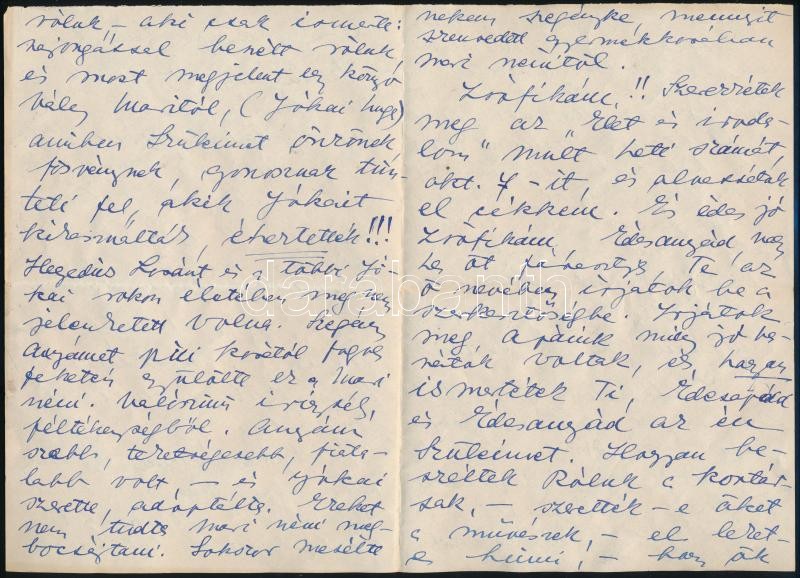 rólunk, – aki csak ismerte:
rajongással beszélt rólunk
és most megjelent egy könyv
Váley Maritól, (Jókai huga)
amiben Szüleimet önzőnek
fösvénynek, gonosznak tün-
teti fel, akik Jókait
kihasználták, éheztették!!!
Hegedüs Lóránt és a többi Jó-
kai rokon életében meg sem
jelenhetett volna. Szegény
Anyámat pici korától fogva
feketén gyülölte ez a Mari
néni. Valószinű irigység,
féltékenységből. Anyám
szebb, tehetségesebb, fiata-
labb volt – és Jókai
szerette, adoptálta. Ezeket
nem tudta Mari néni meg-
bocsájtani. Sokszor mesélte
nekem szegényke, mennyit
szenvedett gyermekkorában
Mari nénitől.
Zsófikám!! Szerezzétek
meg az „Élet és iroda-
lom" mult heti számát,
okt. 7-it, és olvassátok
el cikkém. És édes jó
Zsófikám, Édesanyád
Te az
ő nevében irjatok be a
szerkesztőségbe. Irjátok
meg, Apáink mily jó ba-
rátok voltak, és hogyan
ismertétek Ti, Édesapád
és Édesanyád az én
Szüleimet. Hogyan be-
széltek Róluk a kortár-
sak, – szerették-e őket
a művészek, – el lehet-
e hinni, – hogy ők
databanth